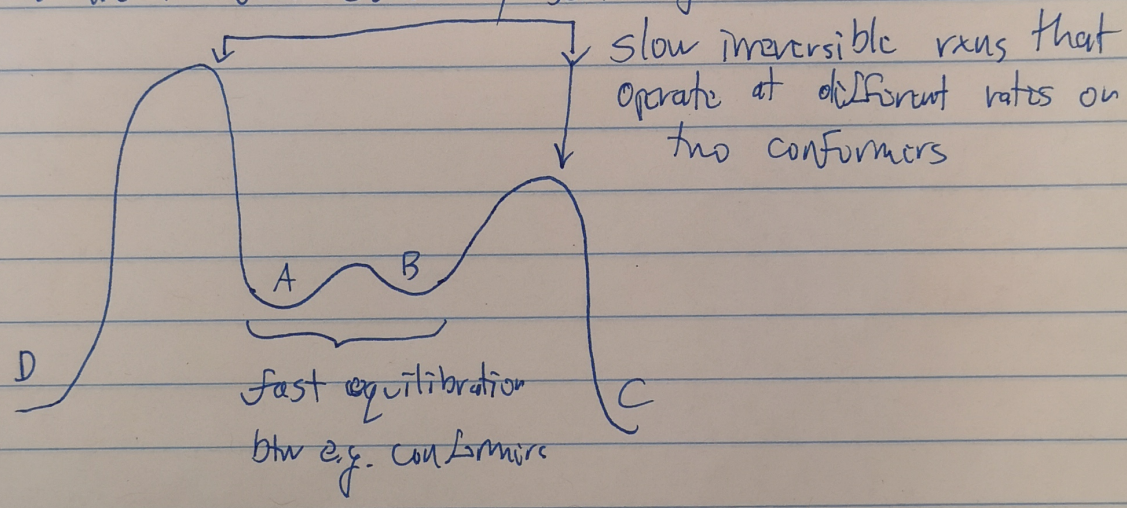 slow irreversible rxns that
operate at different rates on
two conformers
A
B
D
fast equilibration
C
btw e.g. conformers